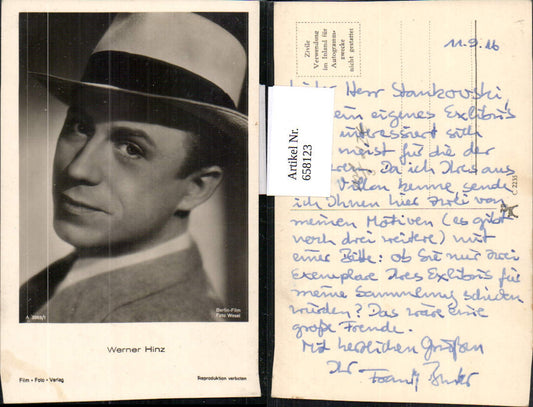 A 3969/1
Berlin-Film
Foto Wesel
Werner Hinz
Film - Foto - Verlag
Reproduktion verboten
Artikel Nr.
658123
Zivile
Verwendung
im Inland für
Autogramm-
zwecke
nicht gestattet
Herr Stankowski,
ein eigenes Exlibris
interessiert sich
meist für die der
Da ich Ihres aus
Villon kenne, sende
ich Ihnen hier zwei von
meinen Motiven (es gibt
noch drei weitere) mit
einer Bitte: ob Sie mir zwei
Exemplare Ihres Exlibris für
meine Sammlung schicken
würden? Das wäre eine
große Freude.
Mit herzlichen Grüßen
Ihr